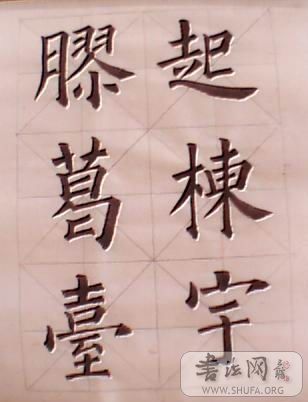 起棟宇
膠葛臺
書法网
WWW.SHUFA.ORG